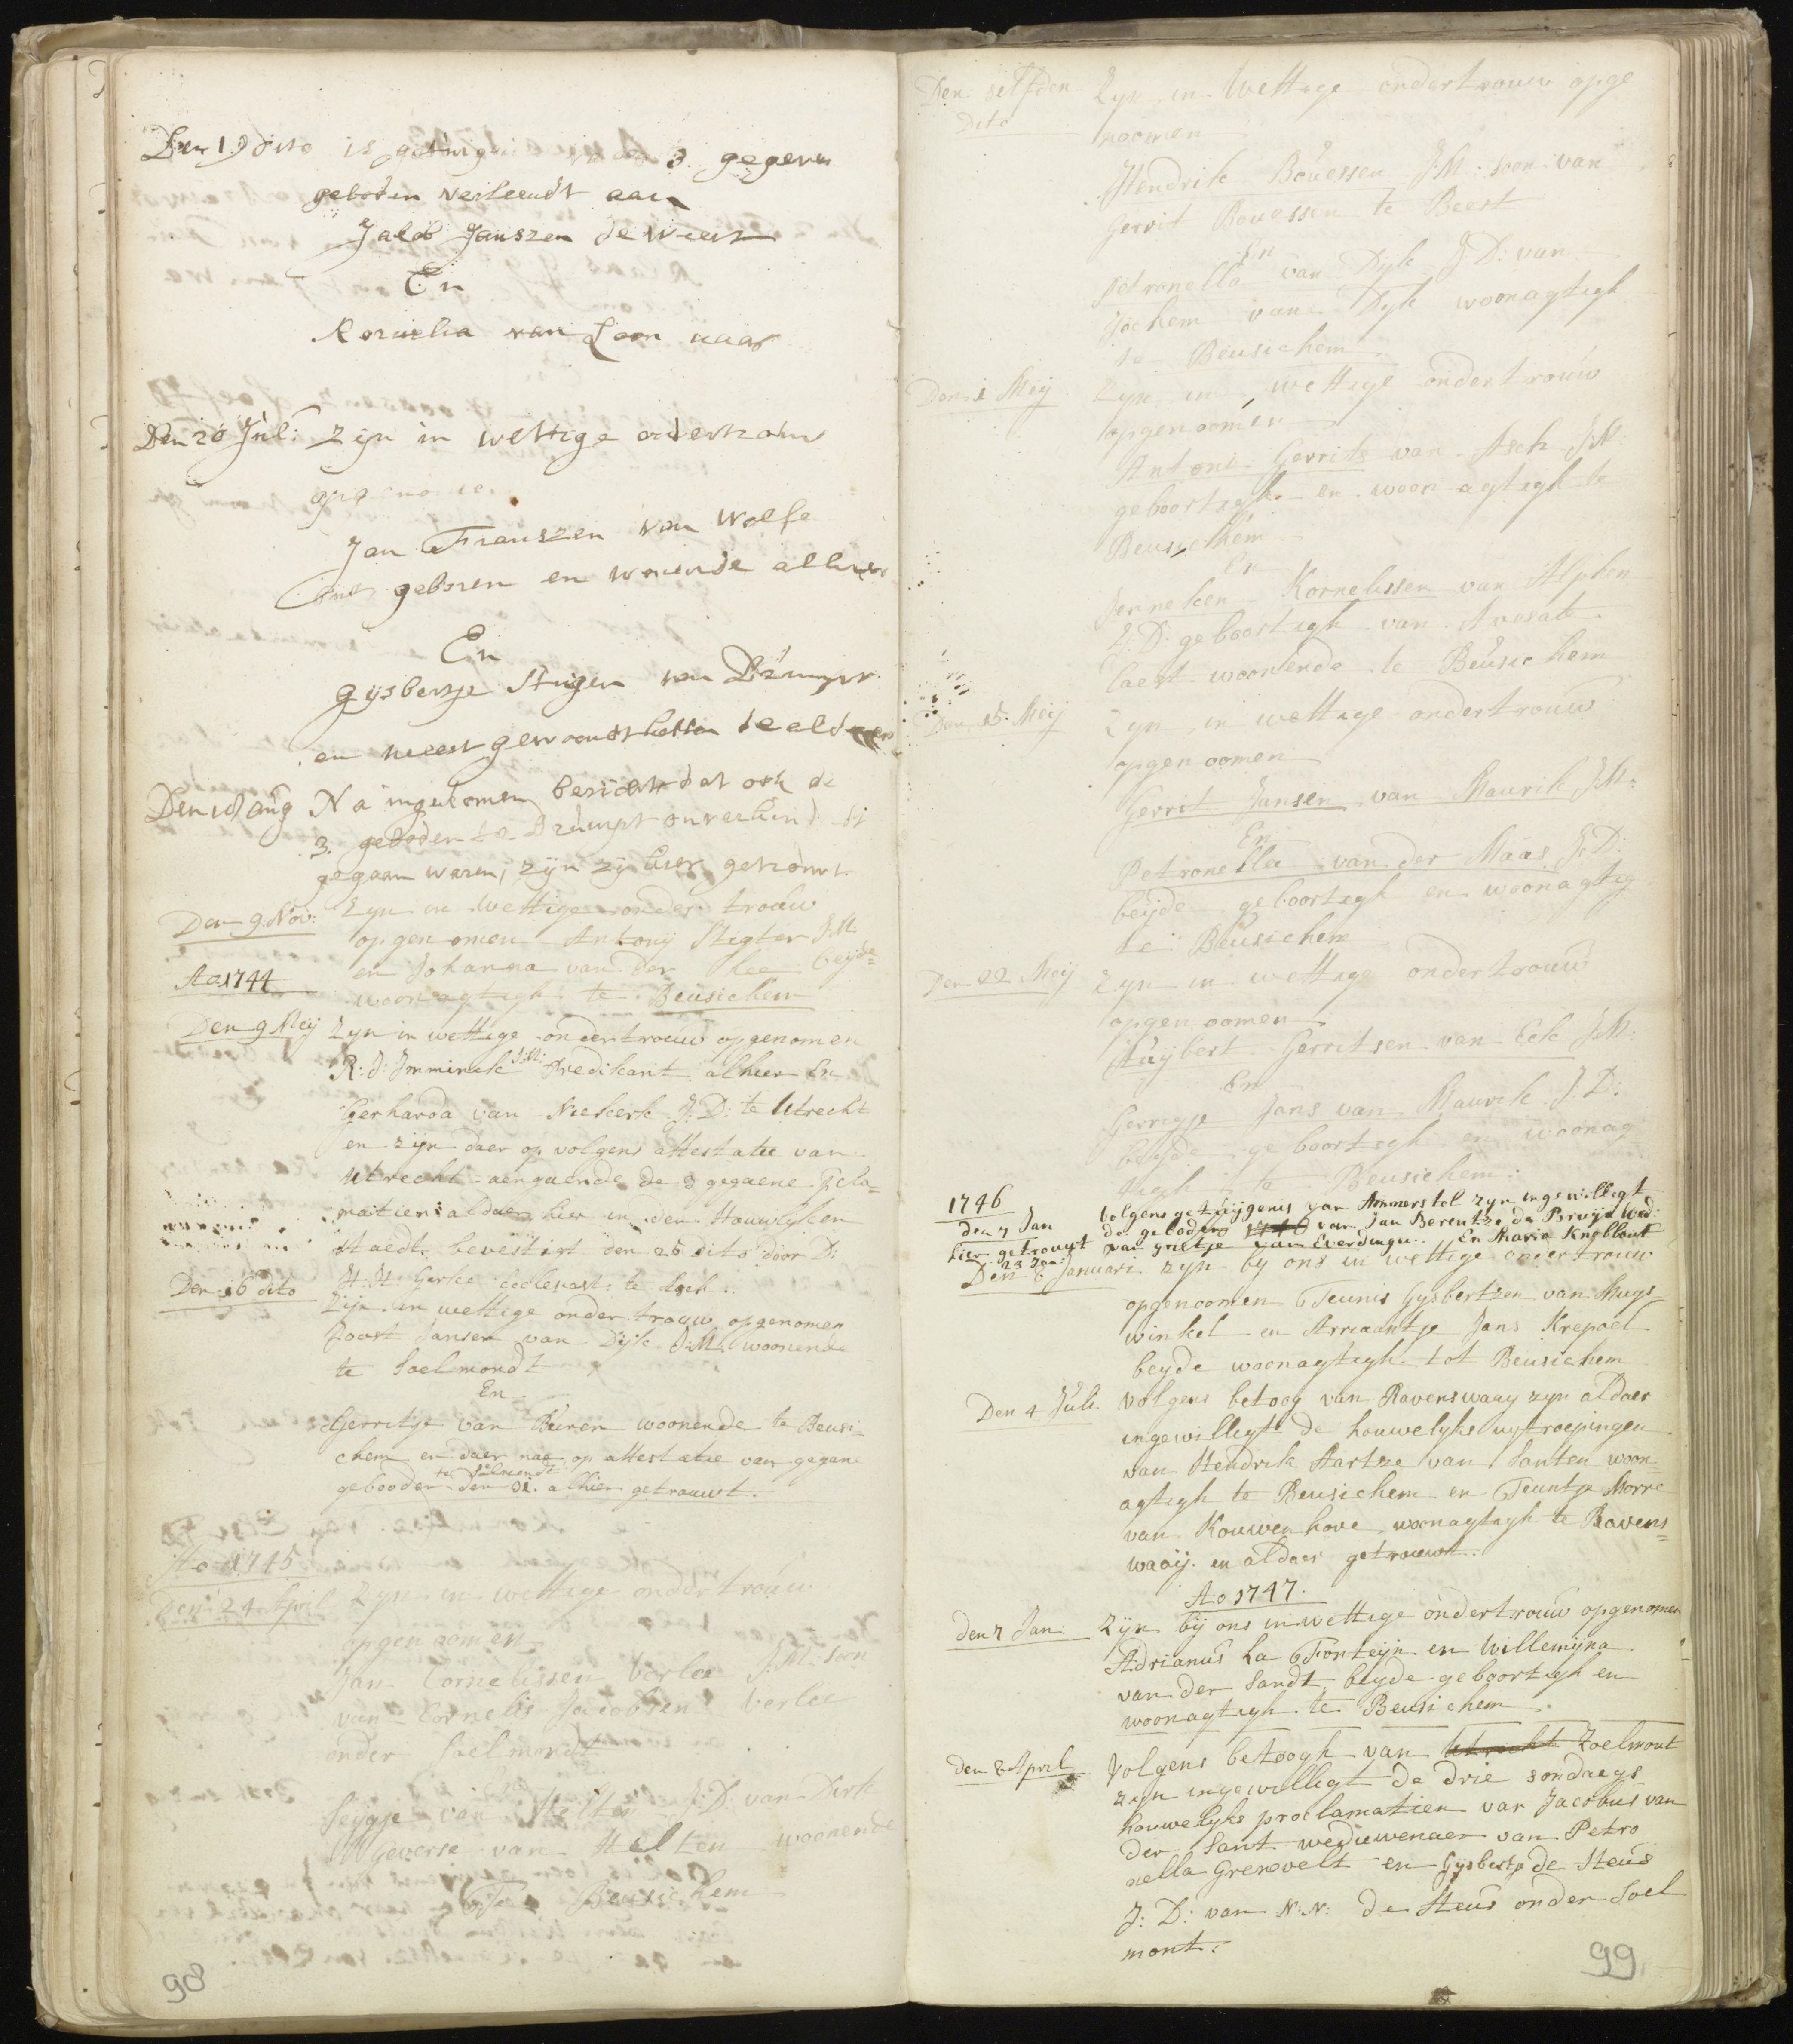 Den 19 dito is getuigenis 3. gegeven
geboden verleendt aan
Jakob Janszen de Weert
En
Kornelia van Loon naar
Den 20 Jul: zijn in wettige ondertrouw
opgenomen
Jan Franszen van Wolfe
geboren en wonende alhier
En
Gijsbertje Stigen van Drumpt
en meest gewoondt hebbende elders
Den 18 Aug Na ingekomen bericht dat ook de
3. geboden te Drumpt onverhinderdt
gegaan waren, zijn zij hier getrouwt.
Den 9. Nov: Zyn in wettige onder trouw
opgenomen Antonij Stigter J.M.
en Johanna van der Lee beijde
woonagtigh te Beusichem
Ao. 1744
Den 9 Meij Zyn in wettige ondertrouw opgenomen
R: J: Imminck J:M: Predikant alhier En
Gerharda van Niekerk J:D: te Utrecht
en zijn daer op volgens attestatie van
Utrecht aengaende de 3 gegaene Procla-
matien aldaer hier in den Houwelyken
Staedt bevestigt den 26 dito door D:
H: H: Garlee ecclesiast: te Asch.
Den 16 dito Zijn in wettige onder trouw opgenomen
Joost Jansen van Dijk J:M. woonende
te Soelmondt
En
Gerritje van Buren woonende te Beusi-
chem en daer nae op attestatie van gegane
gebooden te Sulmondt den 31. alhier getrouwt.
Ao 1745
Den 24 April Zyn in wettige ondertrouw
opgenoomen
Jan Cornelissen Verlee J.M: soon
van Cornelis Jacobsen Verlee
onder Soelmondt
En
Seygje van Helten J:D. van Dirk
Geverse van Helten woonende
Te Beusichem
98
Den selfden Dito Zyn in Wettige ondertrouw opge
noomen
Hendrik Bouessen J.M: soon van
Gerrit Bouessen te Beest
En
Petronella van Dijk J:D: van
Jochem van Dijk woonagtigh
te Beusichem
Den 1 Meij Zyn in wettige ondertrouw
opgenoomen
Antoni Gerrits van Asch J:M:
geboortigh en woon agtigh te
Beusichem
En
Jenneken Kornelissen van Alphen
J:D. geboortigh van Avesate
laest woonende te Beusichem
Den 15. Meij Zyn in wettige ondertrouw
opgenoomen
Gerrit Jansen van Maurik J:M:
En
Petronella van der Maas J:D:
beijde geboortigh en woonagtig
te Beusichem
Den 22 Meij Zyn in wettige ondertrouw
opgenoomen
Huijbert Gerritsen van Eck J:M:
En
Gerrigje Jans van Maurik J:D:
beijde geboortigh en woonag
tigh te Beusichem:
1746
den 7 Jan Volgens getuijgenis van Ammerstol zyn ingewilligt
de geboden van Jan Berentze de Bruijn Wed:
hier getrouwt van Grietje van Everdingen. En Maria Knoblout
23 Jan:
Den 8 Januari zyn by ons in wettige ondertrouw
opgenoomen Teunis Gysbertzen van Muys-
winkel en Arriaantje Jans Krepoel
beyde woonagtigh tot Beusichem
Den 4 Juli. Volgens betoog van Ravenswaay zyn aldaer
ingewilligt de houwelyks uytroepingen
van Hendrik Aartze van Santen woon-
agtigh te Beusichem en Teuntje Morre
van Kouwenhove woonagtigh te Ravens-
waaij. en aldaer getrouwt.
Ao 1747.
den 7 Jan: Zyn bij ons in wettige ondertrouw opgenomen
Adrianus La Fonteijn en Willemijna
van der Sandt beyde geboortigh en
woonagtigh te Beusichem.
den 8 April Volgens betoogh van Utrecht Zoelmont
zyn ingewilligt de drie sondaegs
houwelyks proclamatien van Jacobus van
der Sant weduwenaer van Petro
nella Grenevelt en Gysbertje de Heus
J: D: van N:N: de Heus onder Soel
mont:
99